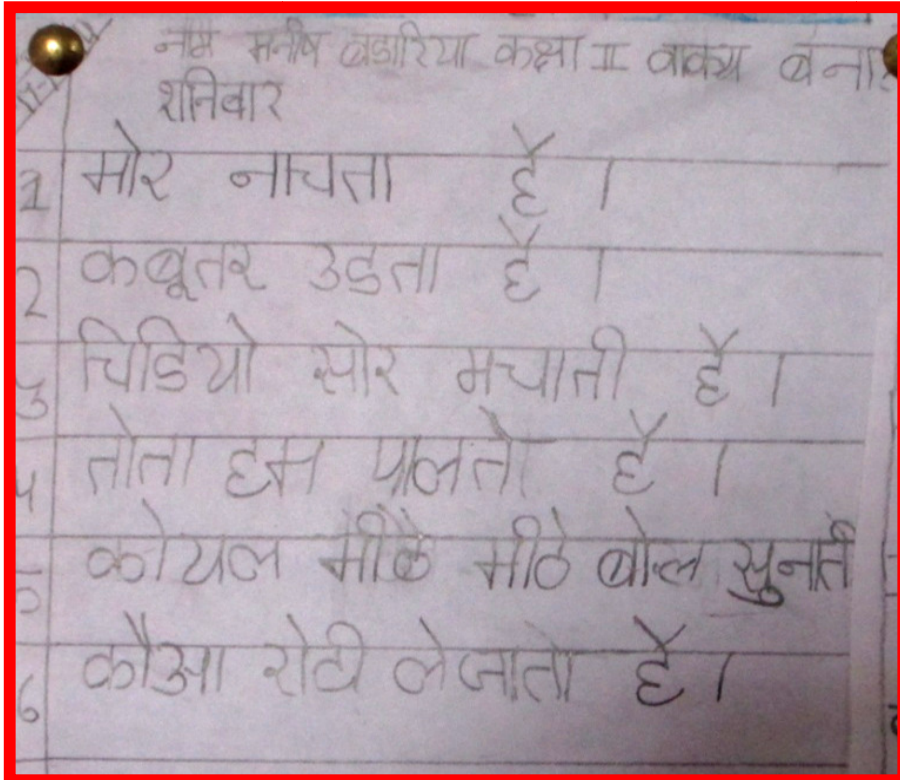 नाम मनीष बडारिया कक्षा II वाक्य बना
शनिवार
1 मोर नाचता है ।
2 कबूतर उडता है ।
3 चिडियो सोर मचाती है ।
4 तोता हम पालते है ।
5 कोयल मीठे मीठे बोल सुनाते
6 कौआ रोटी लेजाता है ।